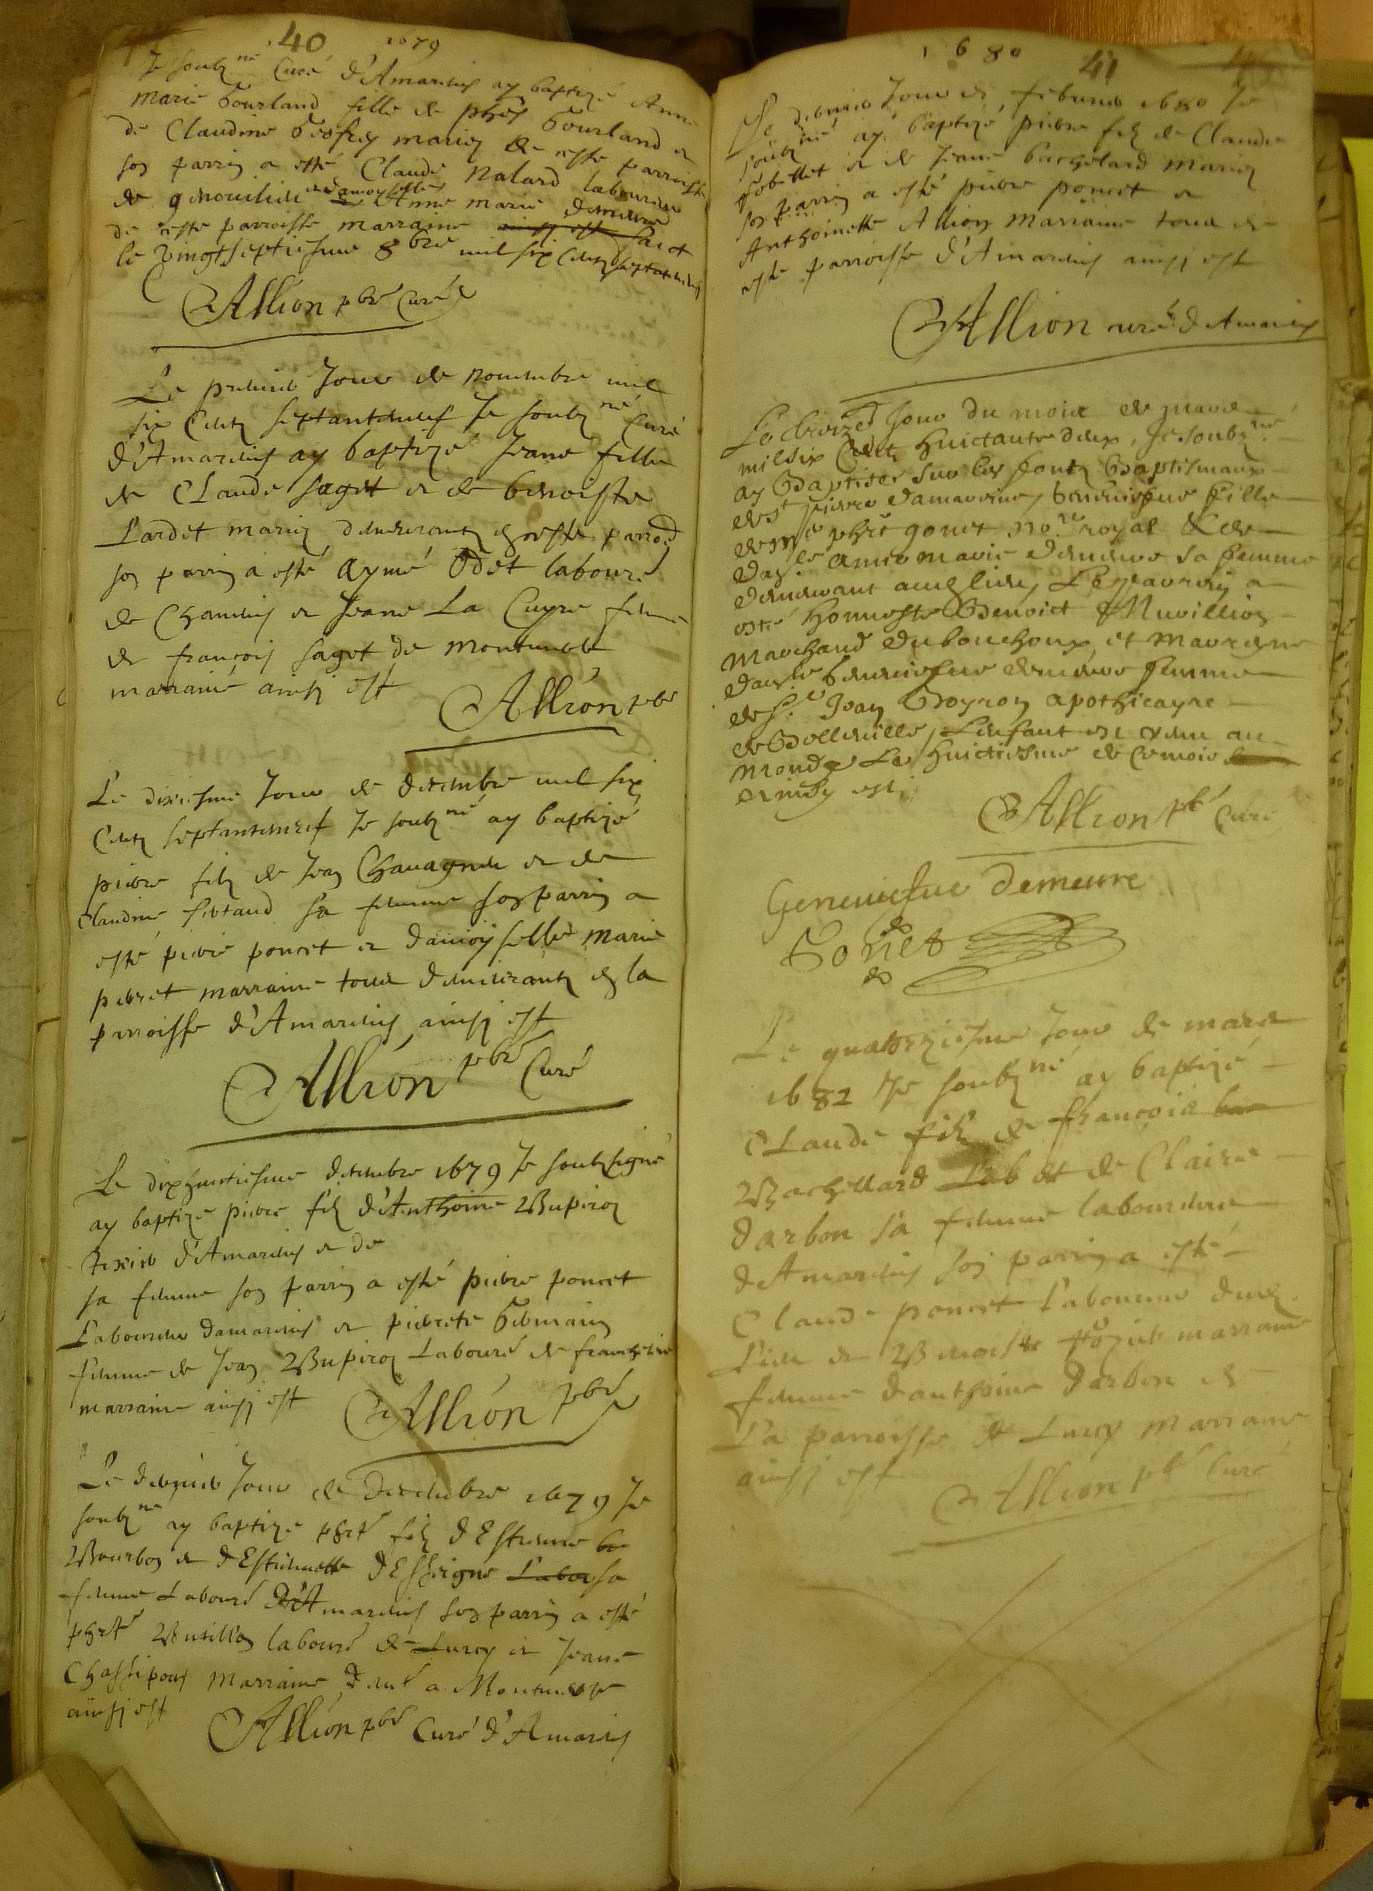 40 1679
Je soubz.né Curé d'Amareins ay baptizé Anne
Marie fille de phēs
de Claudine mariez de ceste parroisse
son parrin a esté Claude Nalard laboureur
de genouilleu et damoyselle Anne marie demeure
de ceste parroisse marraine faict
le vingtseptiesme 8bre mil six centz septanteneuf
Allion pbre Curé
Le premier Jour de novembre mil
six centz septanteneuf Je soubz.né Curé
d'Amareins ay baptizé Jeane fille
de CLaude sagot et de benoiste
Lardet mariez demeurantz en ceste parroe
son parrin a esté Aymé Odet labouré
de Chaneins et Jeane La Cuyre feme
de françois sagot de montmerle
marraine ainsj est
Allion pbr
Le dixiesme Jour de decembre mil six
Centz septanteneuf Je soubz.né ay baptizé
pierre filz de Jean Chavagneu et de
Claudine sa femme son parrin a
esté pierre poncet et damoyselle marie
perret marraine tous demeurantz en la
parroisse d'Amareins ainsj est
Allion pbre Curé
Le dixhuitiesme decembre 1679 Je soubzsigné
ay baptizé pierre filz d'Anthoine Bupiron
Texier d'Amareins et de
sa femme son parrin a esté pierre poncet
Laboureur damareins et pierrete Germain
femme de Jean Bupiron Labouré de francheleins
marraine ainsj est
Allion pbre
Le dernier Jour de Decembre 1679 Je
soubz.ne ay baptize phēt filz d'Estienne
Bourbon et d'Estiennette d'Esseigne sa
femme Labouré d'Amareins son parrin a esté
phēt Butillon labouré de Lurcy et Jeane
Chassipoux Marraine, a Montmerle
ainsj est
Allion pbre Curé d'Amareins
1680 41
Le dernier Jour de februier 1680 Je
soubz.né ay baptizé pierre filz de Claude
gobellet et de Jeane bachelard mariez
son parrin a esté pierre poncet et
Anthoinette Allion marraine tous de
ceste parroisse d'Amareins ainsj est
Allion curé d'Amareins
Le Jour du mois de mars
mil six Centz huictante deux, Je soubz.né
ay Baptisée sur les fontz Baptismaux
de st pierre damareins, Geneviefve fille
de me phēt gonet no.re royal & de
da.lle Anne marie demeure sa femme
demeurant audlieu, Le parrein a
esté honneste Benoict Muvillion
marchand du bouchoux, et Marreine
da.lle Geneviefve demeure femme
de S.r Jean Boyron apothicayre
de Belleville, Lenfant est venu au
monde Le huictiesme de ce mois
ainsy est
Allion pbr Curé
Geneviefve Demeure
Gonet
Le quatorziesme Jour de mars
1682 Je soubz.né ay baptizé
CLaude filz de françois
Bachellard Lab et de Claire
darbon sa femme laboureur
d'Amareins son parrin a esté
Claude poncet Laboureur dud.
Lieu et Benoiste marraine
femme d'anthoine darbon de
La parroisse de Lurcy marraine
ainsj est
Allion pbr Curé